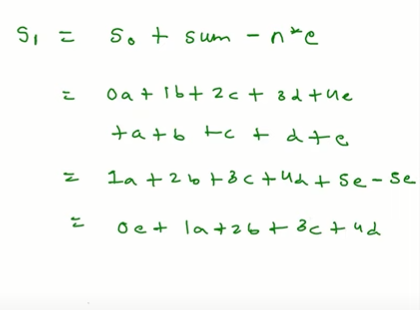 S₁ = S₀ + sum - n*e
= 0a + 1b + 2c + 3d + 4e
+a + b + c + d + e
= 1a + 2b + 3c + 4d + 5e - 5e
= 0e + 1a + 2b + 3c + 4d